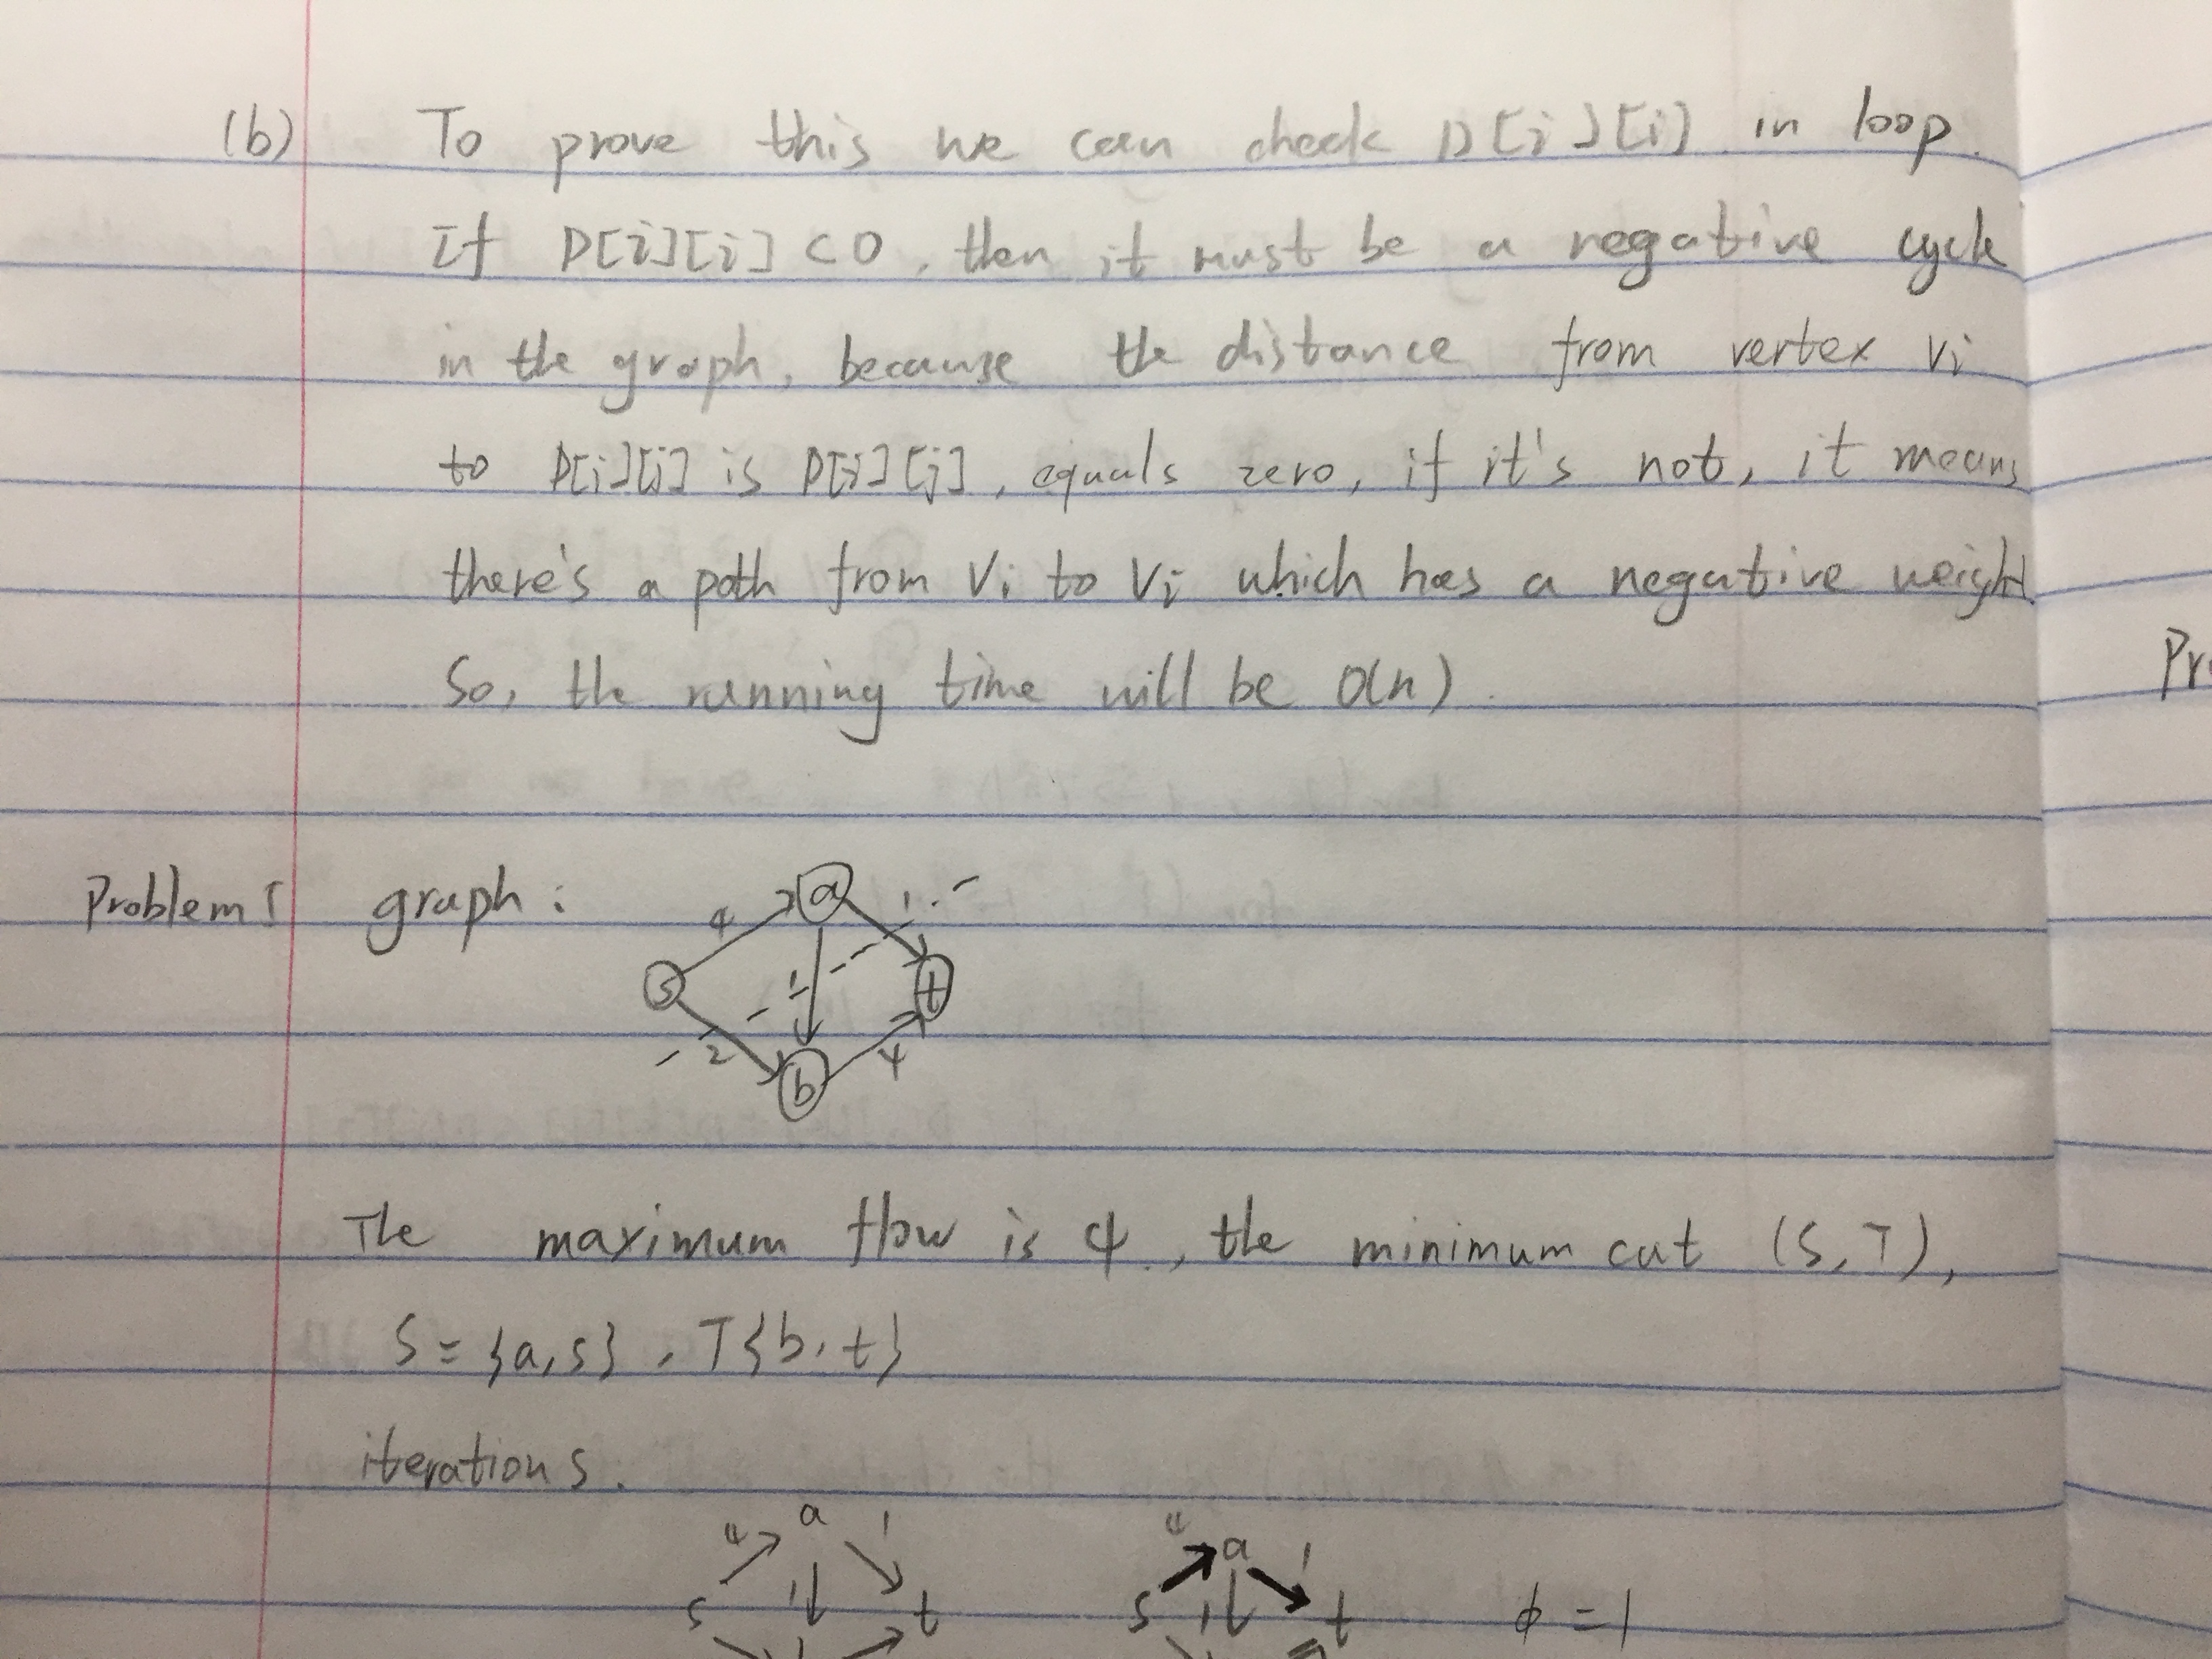 (b) To prove this we can check D[i][i] in loop.
If D[i][i] < 0, then it must be a negative cycle
in the graph, because the distance from vertex vi
to D[i][j] is D[i][j], equals zero, if it's not, it means
there's a path from Vi to Vi which has a negative weight.
So, the running time will be O(n).
graph:
a
4 1
s 1 t
2 4
b
The maximum flow is 4, the minimum cut (S,T),
S = {a,s}, T{b,t}
iterations.
4 a 1 4 a 1
s 1 t s 1 t ϕ = 1
Problem